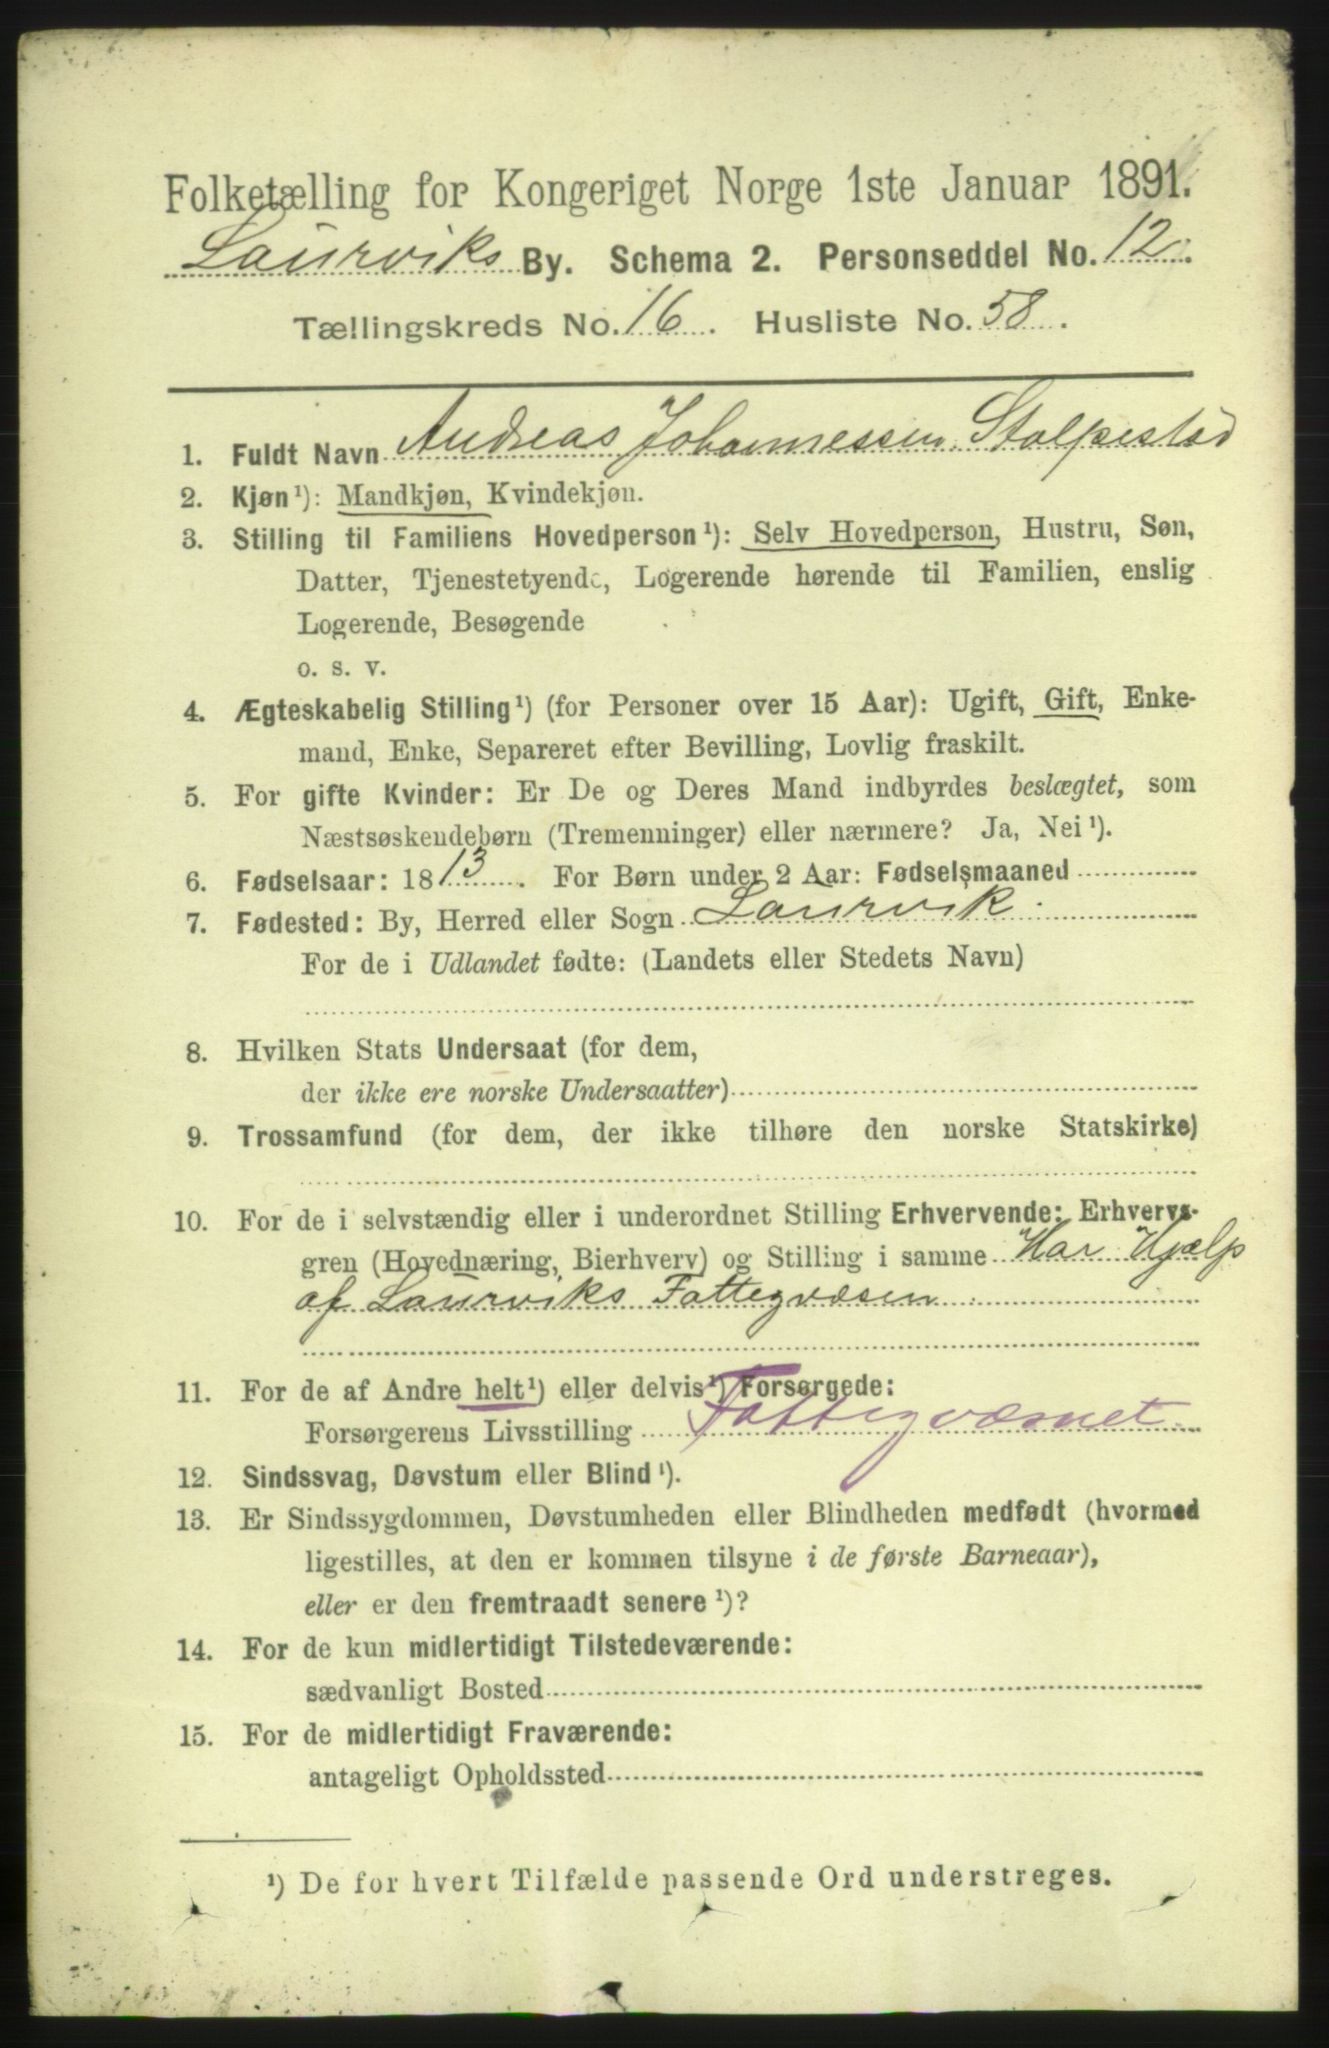 Folketælling for Kongeriget Norge 1ste Januar 1891.
Laurviks By. Schema 2. Personseddel No. 12.
Tællingskreds No. 16. Husliste No. 58.
1. Fuldt Navn Andreas Johannessen Stolpestad
2. Kjøn¹): Mandkjøn, Kvindekjøn.
3. Stilling til Familiens Hovedperson¹): Selv Hovedperson, Hustru, Søn,
Datter, Tjenestetyende, Logerende hørende til Familien, enslig
Logerende, Besøgende
o. s. v.
4. Ægteskabelig Stilling¹) (for Personer over 15 Aar): Ugift, Gift, Enke-
mand, Enke, Separeret efter Bevilling, Lovlig fraskilt.
5. For gifte Kvinder: Er De og Deres Mand indbyrdes beslægtet, som
Næstsøskendebørn (Tremenninger) eller nærmere? Ja, Nei¹).
6. Fødselsaar: 1813. For Børn under 2 Aar: Fødselsmaaned
7. Fødested: By, Herred eller Sogn Laurvik.
For de i Udlandet fødte: (Landets eller Stedets Navn)
8. Hvilken Stats Undersaat (for dem,
der ikke ere norske Undersaatter)
9. Trossamfund (for dem, der ikke tilhøre den norske Statskirke)
10. For de i selvstændig eller i underordnet Stilling Erhvervende: Erhvervs-
gren (Hovednæring, Bierhverv) og Stilling i samme Har Hjælp
af Laurviks Fattegvæsen
11. For de af Andre helt¹) eller delvis¹) Forsørgede:
Forsørgerens Livsstilling Fattegvæsnet.
12. Sindssvag, Døvstum eller Blind¹).
13. Er Sindssygdommen, Døvstumheden eller Blindheden medfødt (hvormed
ligestilles, at den er kommen tilsyne i de første Barneaar),
eller er den fremtraadt senere¹)?
14. For de kun midlertidigt Tilstedeværende:
sædvanligt Bosted
15. For de midlertidigt Fraværende:
antageligt Opholdssted
¹) De for hvert Tilfælde passende Ord understreges.